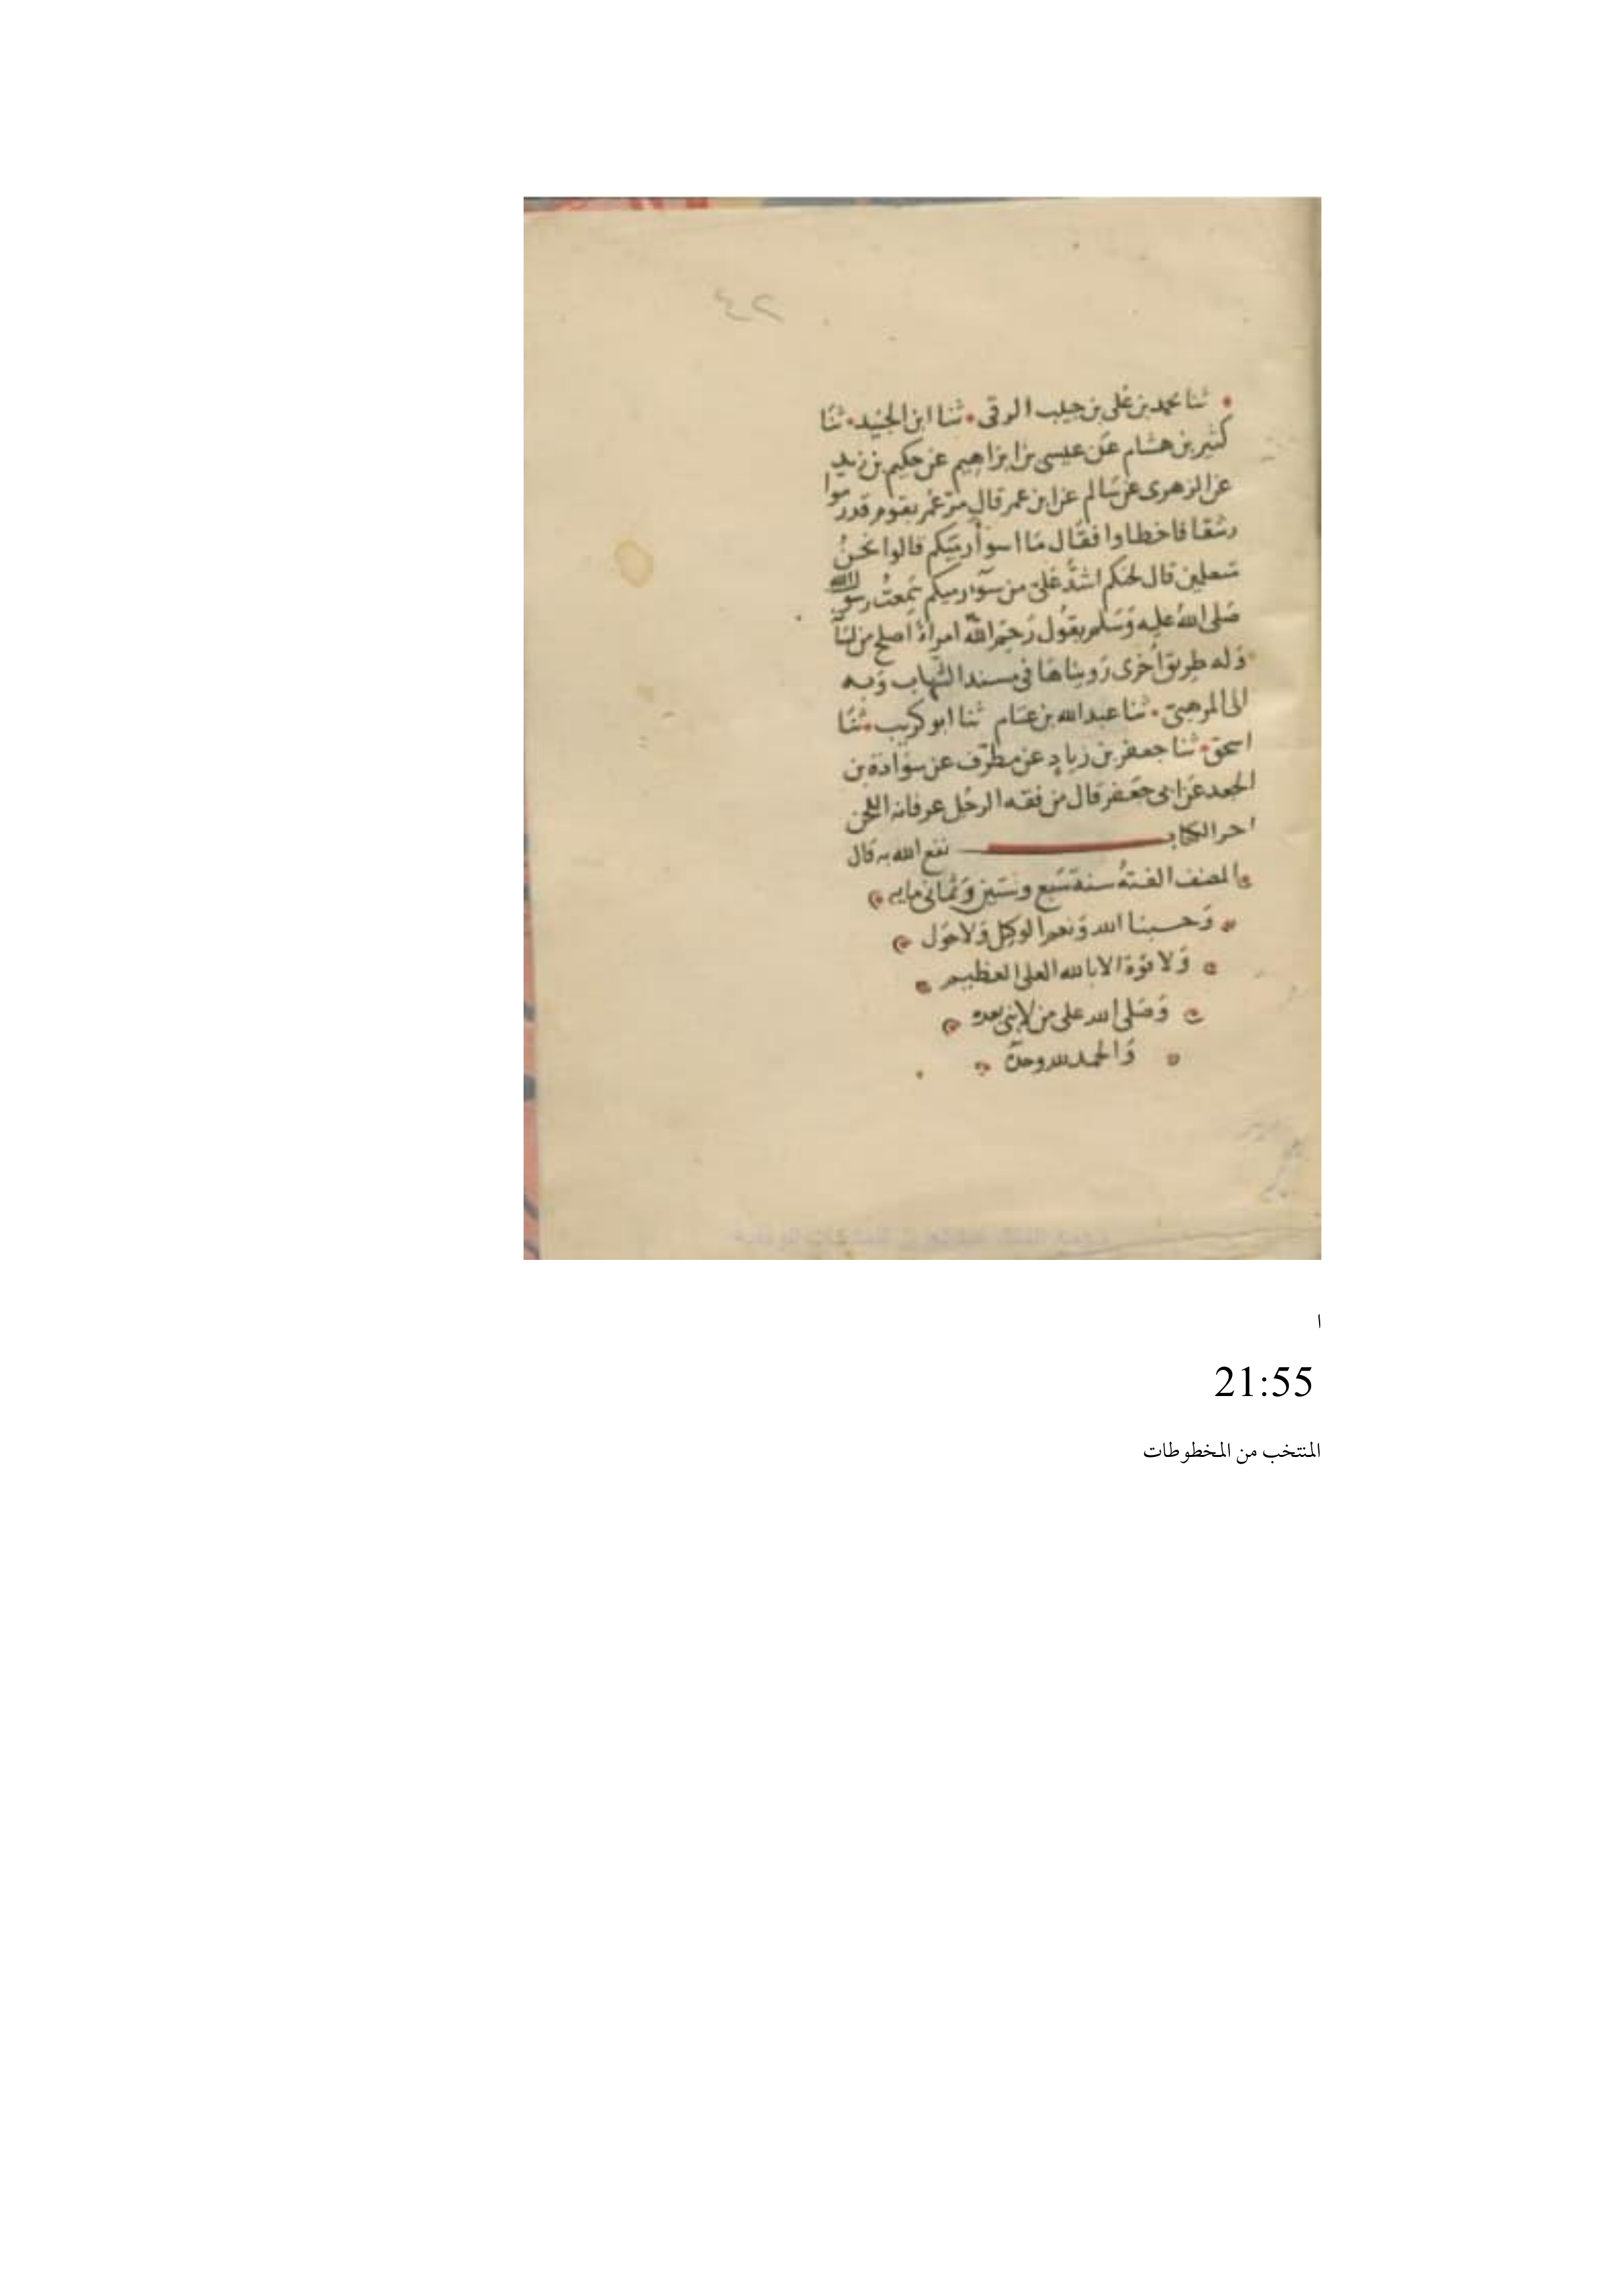 ٢٤
ثنا محمد بن علي بن حبيب الوقي • ثنا ابن الجنيد • ثنا
كثير بن هشام عن عيسى بن ابراهيم عن حكيم بن زيد
عن الزهرى عن سالم عن ابن عمر قال مر عمر بقوم قد رموا
رشقا فاخطاوا فقال ما اسوأ رميكم قالوا نحن
متعلمين قال لحنكم اشد علي من سوء رميكم سمعت رسول الله
صلى الله عليه وسلم يقول رحم الله امرأ اصلح من لسا
وله طريق اخرى رويناها في مسند الشهاب وبه
الى المرهبي • ثنا عبد الله بن غنام ثنا ابو كريب • ثنا
اسحق • ثنا جعفر بن زياد عن مطرف عن سوادة بن
الجعد عن ابى جعفر قال من فقه الرجل عرفانه اللحن
اخر الكتاب نفع الله به قال
المصنف الفته سنة سبع وستين وثمانى مايه
وحسبنا الله ونعم الوكيل ولا حول
ولا قوة الا بالله العلى العظيم
وصلى الله على من لا نبى بعده
والحمد لله وحده
ا
21:55
المنتخب من المخطوطات